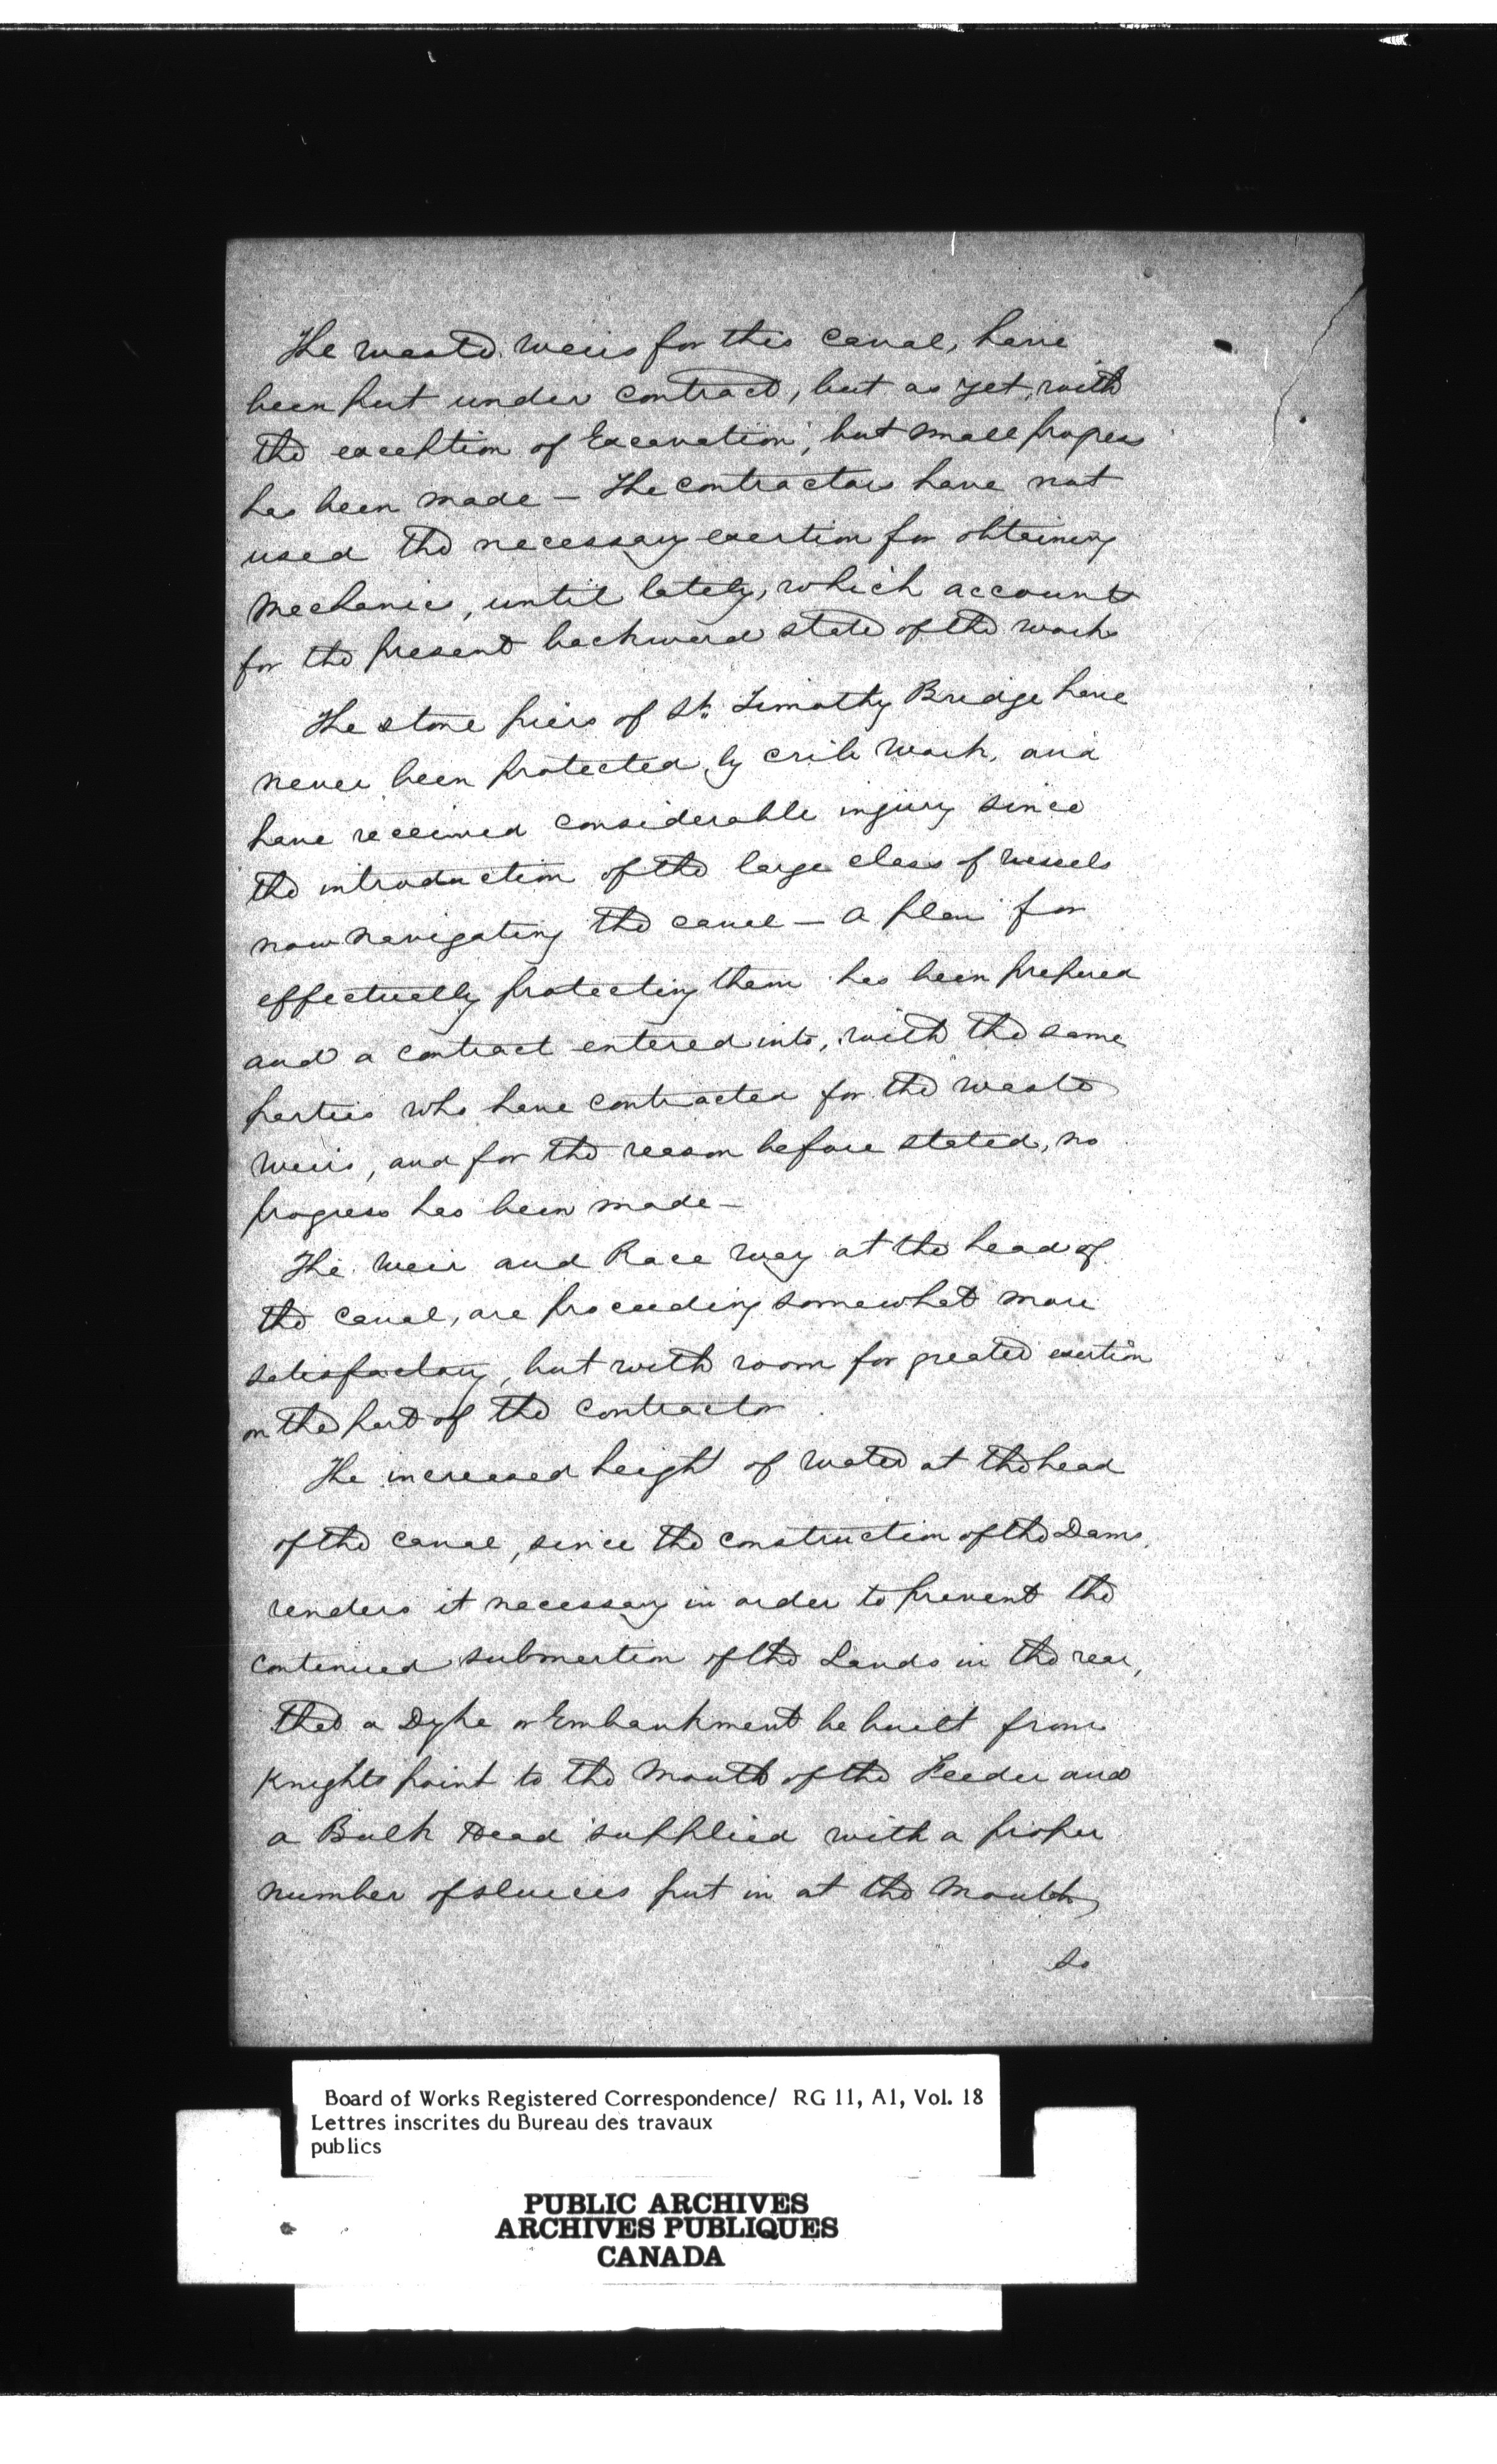 The waste weirs for this canal, have
been put under contract, but as yet, with
the exception of Excavation, but small progress
has been made — The contractors have not
used the necessary exertion for obtaining
Mechanics, until lately, which accounts
for the present backward state of the work
The stone piers of St. Timothy Bridge have
never been protected by crib work, and
have received considerable injury since
the introduction of the large class of vessels
now navigating the canal — A plan for
effectually protecting them has been prepared
and a contract entered into, with the same
parties who have contracted for the waste
weirs, and for the reason before stated, no
progress has been made —
The weir and Race way at the head of
the canal, are proceeding somewhat more
satisfactory, but with room for greater exertion
on the part of the contractor.
The increased height of water at the head
of the canal, since the construction of the Dams,
renders it necessary in order to prevent the
continued submertion of the Lands in the rear,
that a Dyke or Embankment be built from
Knights point to the Mouth of the Feeder and
a Bulk Head supplied with a proper
number of sluices put in at the Mouth,
so
Board of Works Registered Correspondence/ RG 11, A1, Vol. 18
Lettres inscrites du Bureau des travaux
publics
PUBLIC ARCHIVES
ARCHIVES PUBLIQUES
CANADA